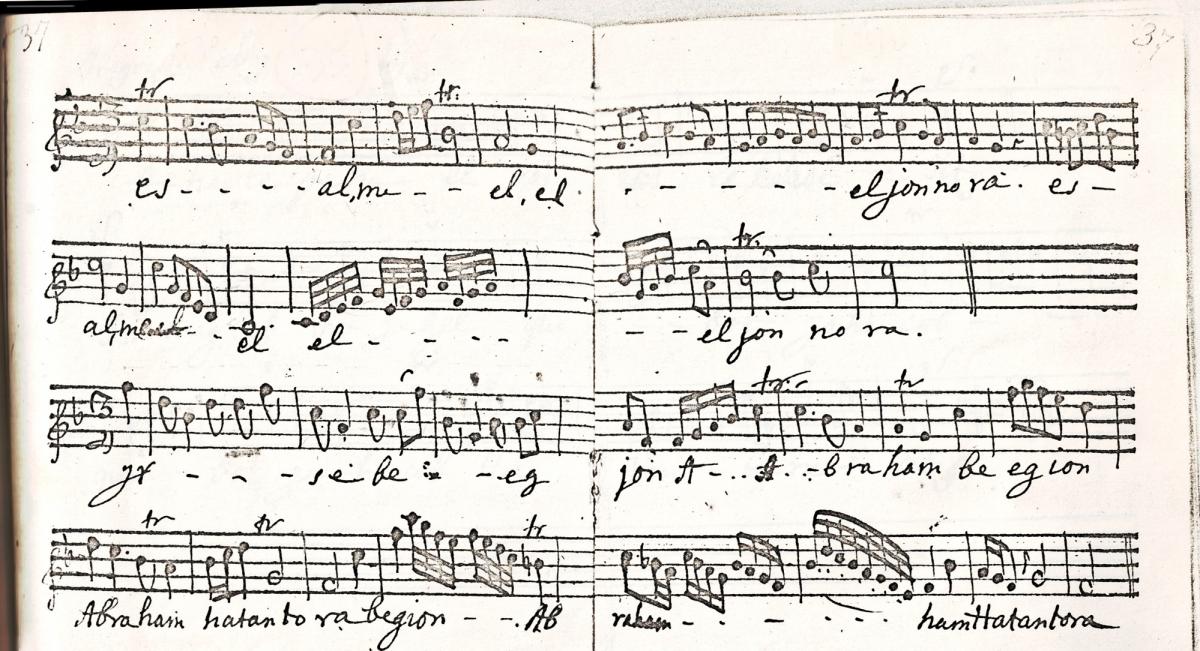 37 37
tr tr. tr
es - - - al,me - - el, el - - - - - el jon no ra. es -
tr.
alme - - el el - - - - - - el jon no ra.
tr. tr
yr - - - se be - eg jon A - . . A . . - braham be egion
tr tr tr
Abraham hatanto ra begion - - . Ab raham - . - . - . . . hamHatantora